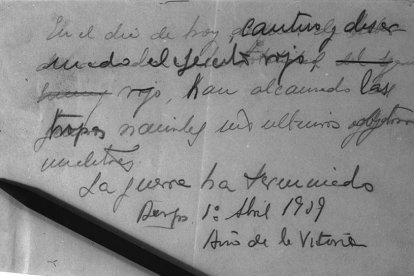 En el día de hoy cautivo y desar
mado del ejercito rojo
rojo, Han alcanzado las
tropas nacionales sus ultimos objetivos
militares.
La guerra ha terminado
Burgos 1º Abril 1939
Año de la Victoria